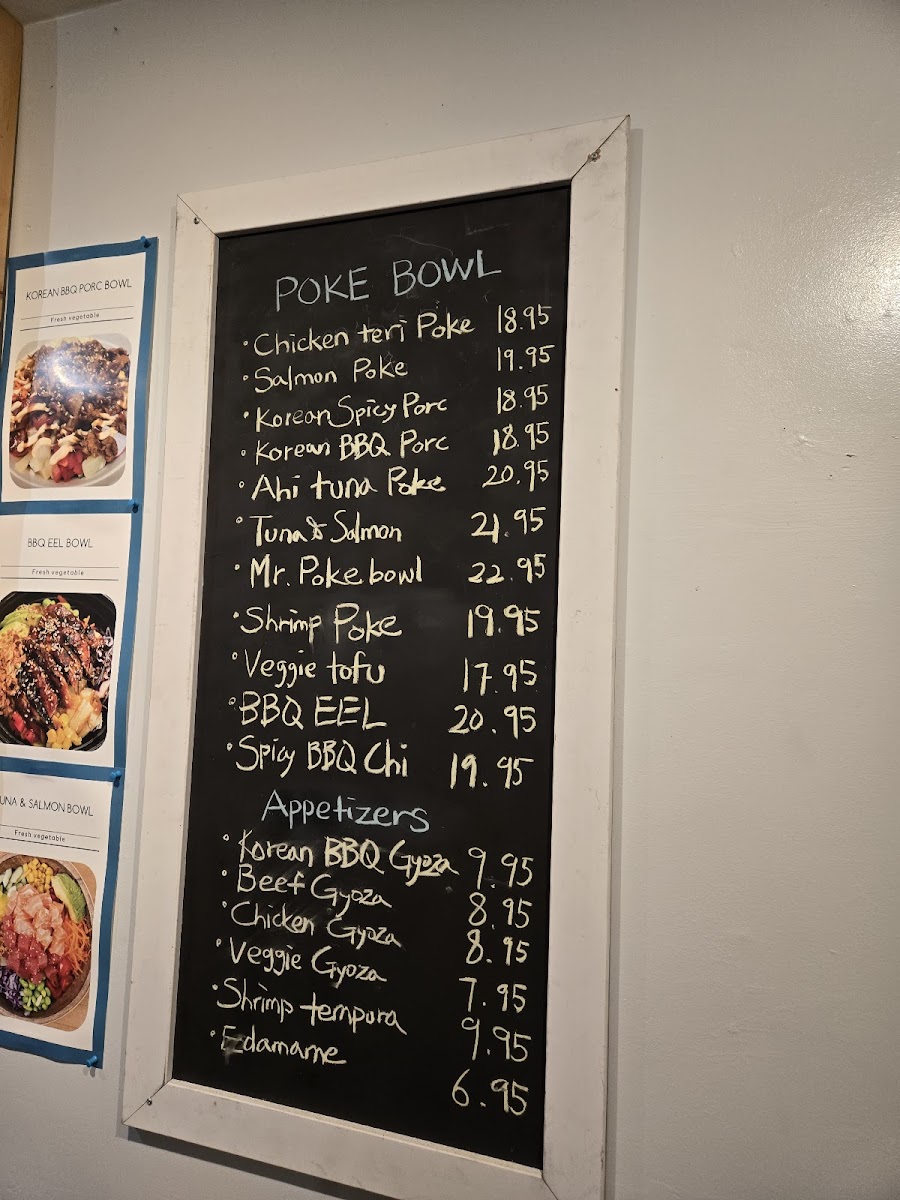 KOREAN BBQ PORC BOWL
Fresh vegetable
BBQ EEL BOWL
Fresh vegetable
UNA & SALMON BOWL
Fresh vegetable
POKE BOWL
• Chicken teri Poke 18.95
• Salmon Poke 19.95
• Korean Spicy Porc 18.95
• Korean BBQ Porc 18.95
• Ahi tuna Poke 20.95
• Tuna & Salmon 21.95
• Mr. Poke bowl 22.95
• Shrimp Poke 19.95
• Veggie tofu 17.95
• BBQ EEL 20.95
• Spicy BBQ Chi 19.95
Appetizers
• Korean BBQ Gyoza 9.95
• Beef Gyoza 8.95
• Chicken Gyoza 8.95
• Veggie Gyoza 7.95
• Shrimp tempura 9.95
• Edamame 6.95